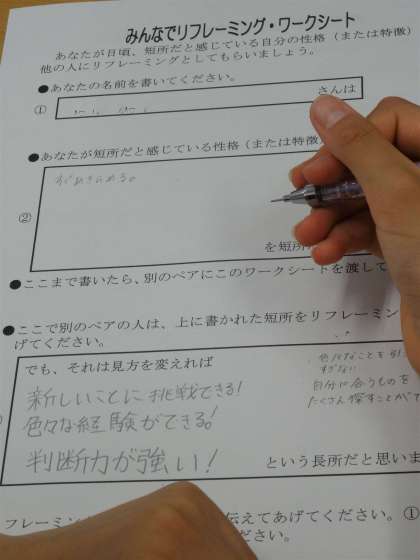 みんなでリフレーミング・ワークシート
あなたが日頃、短所だと感じている自分の性格(または特徴)
他の人にリフレーミングとしてもらいましょう。
●あなたの名前を書いてください。
①
さんは
●あなたが短所だと感じている性格(または特徴
すぐあきらめる。
②
を短所
●ここまで書いたら、別のペアにこのワークシートを渡して
●ここで別のペアの人は、上に書かれた短所をリフレーミン
げてください。
でも、それは見方を変えれば
新しいことに挑戦できる!
色々な経験ができる!
判断力が強い!
すぎない
自分に合うものを
たくさん探すことが
という長所だと思いま
フレーミン
伝えてあげてください。①
ださい。